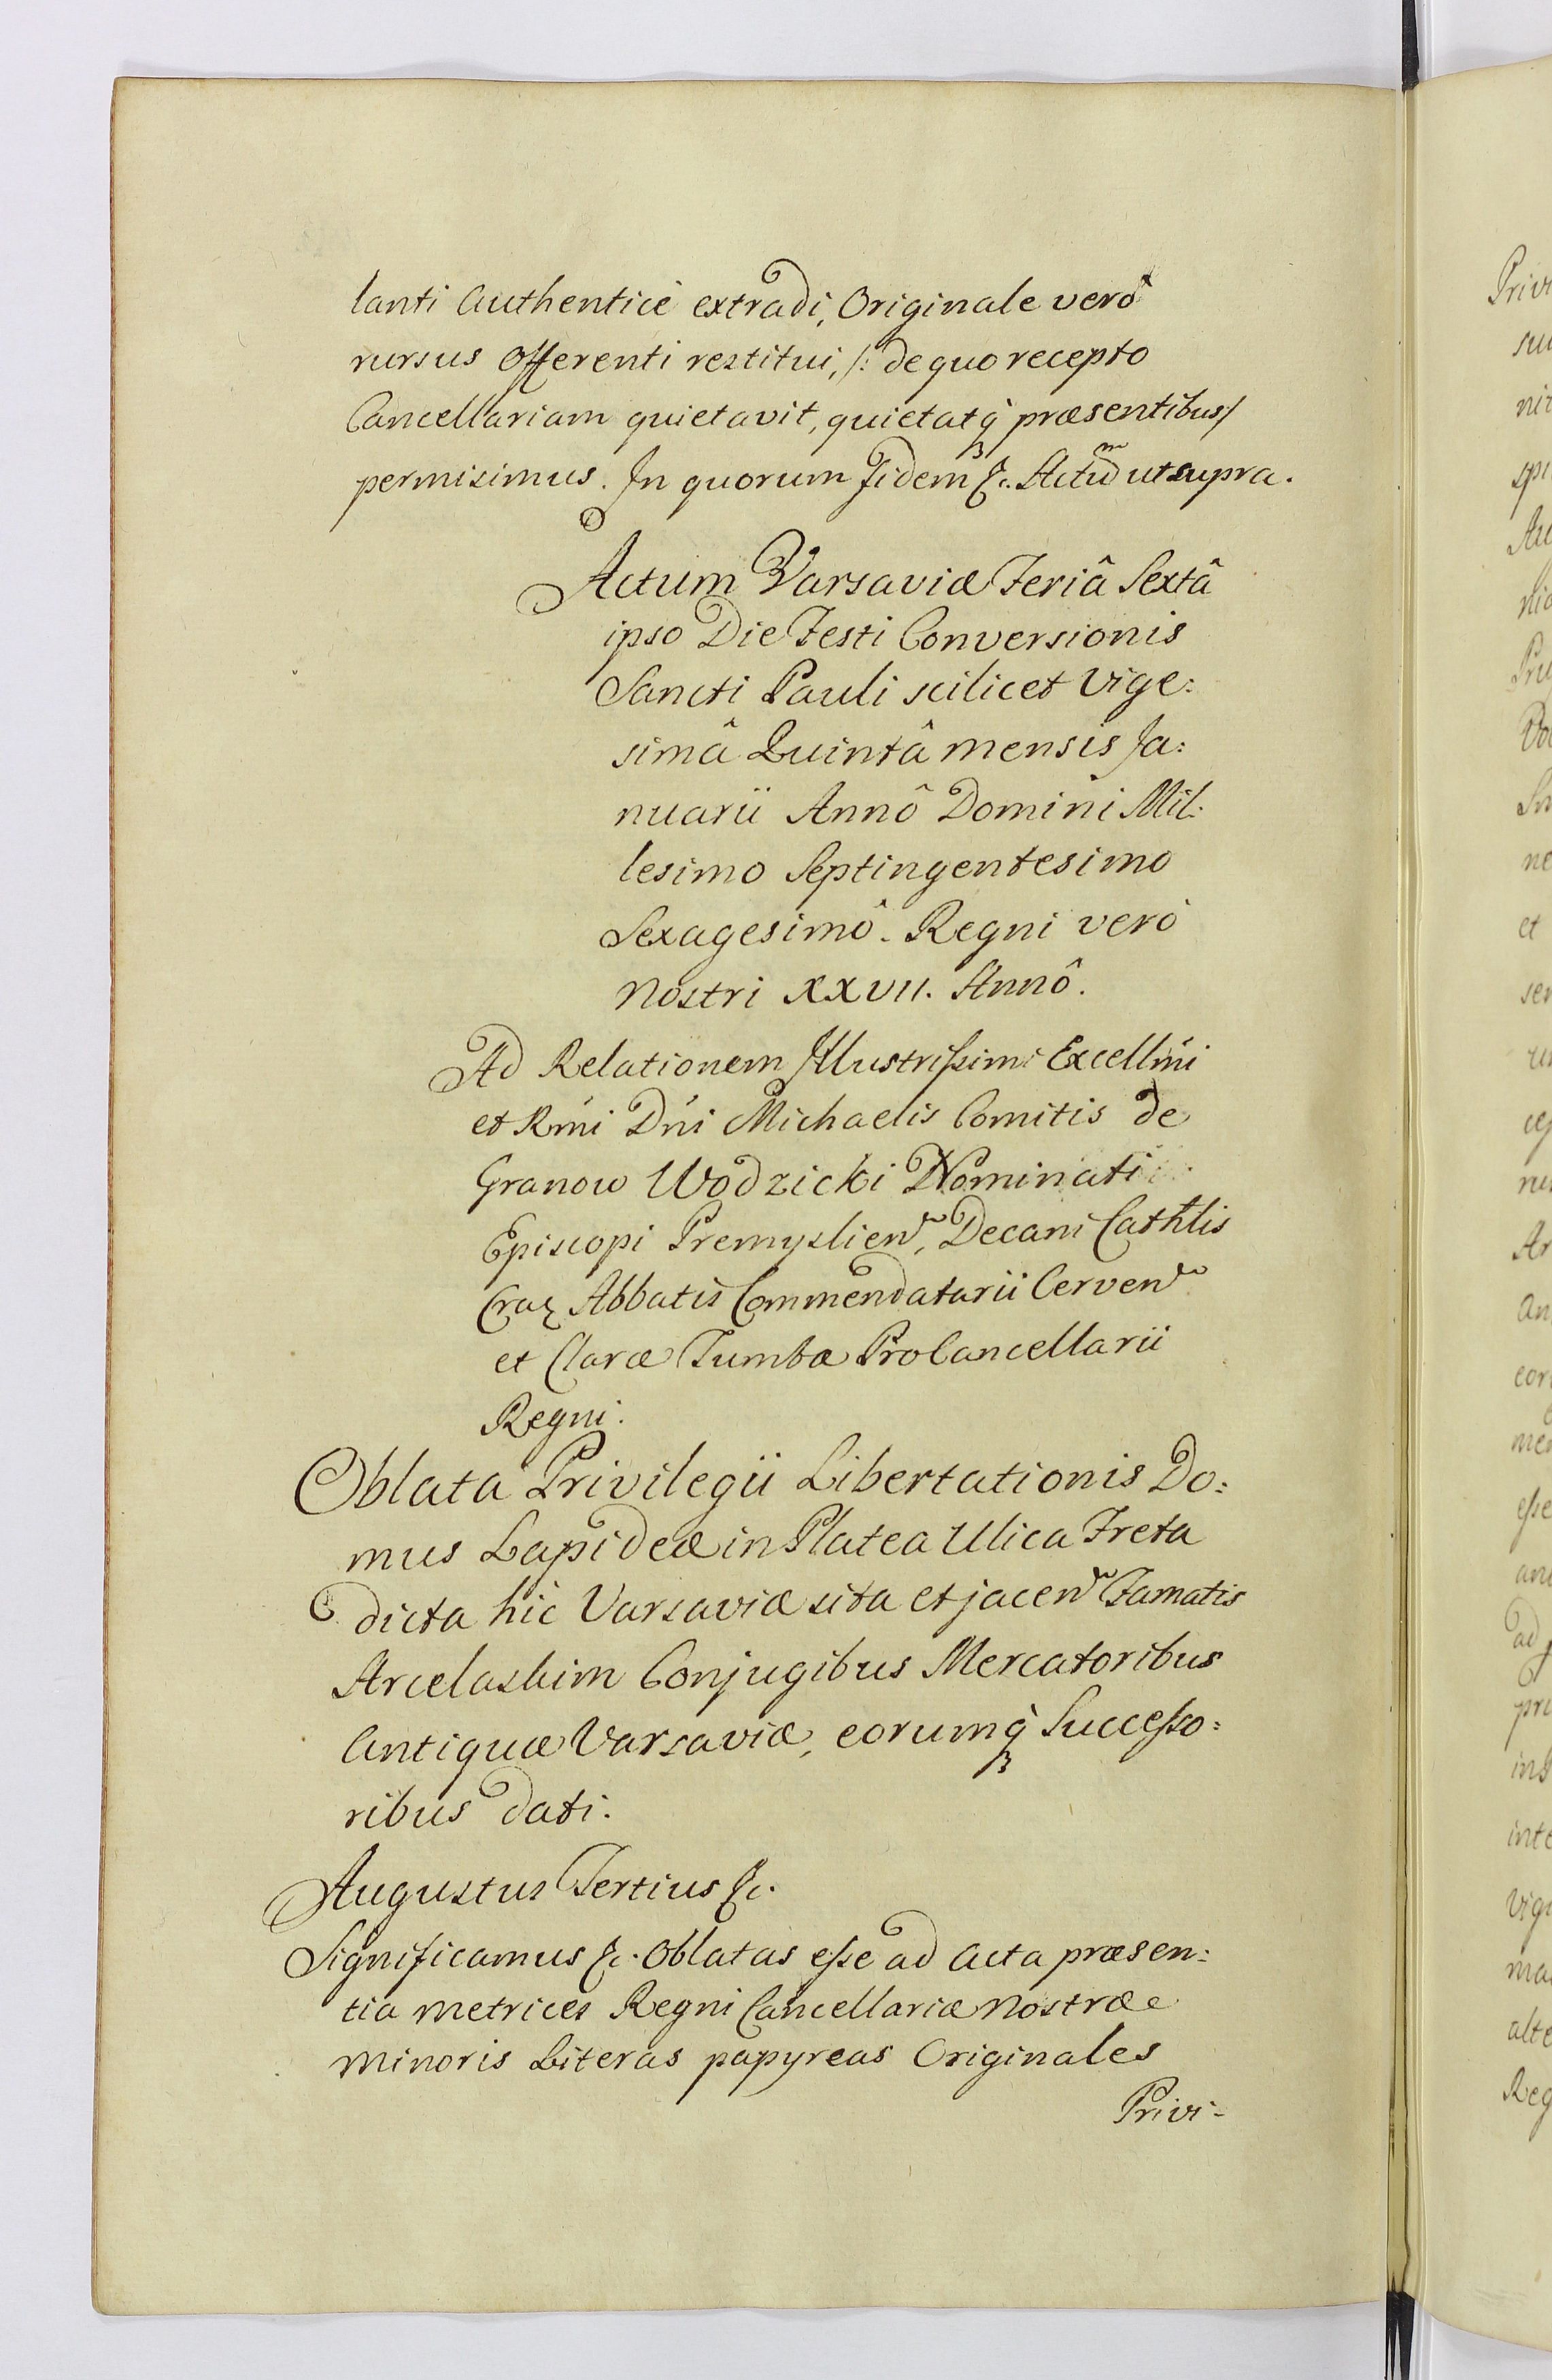 lanti Authenticè extradi, Originale verò
rursus Offerenti restitui, /: de quo recepto
Cancellariam quietavit, quietatq̀ præsentibus/
permisimus. In quorum Fidem &c. Actũd ut supra.
Actum Varsaviæ Feriâ Sextâ
ipso Die Festi Conversionis
Sancti Pauli scilicet Vige:
simâ Quintâ mensis Ja:
nuarii Annô Domini Mil:
lesimo Septingentesimo
Sexagesimô. Regni verò
Nostri XXVII. Annô.
Ad Relationem Illustrißimi Excellm̃i
et Rm̃i Dn̄i Michaelis Comitis de
Granow Wodzicki Nominati
Episcopi Premyslien, Decani Cathlis
Crac Abbatis Commendatarii Cerven
et Claræ Tumbæ ProCancellarii
Regni.
Oblata Privilegii Libertationis Do:
mus Lapideæ in Platea Ulica Freta
dicta hic Varsaviæ sita et jacen Famatis
Arcelaskim Conjugibus Mercatoribus
Antiquæ Varsaviæ, eorumq̀ Succeßo:
ribus dati.
Augustus Tertius &c.
Significamus &c. Oblatas eße ad Acta præsen:
tia Metrices Regni Cancellariæ Nostræ
Minoris Literas papyreas Originales
Privi-